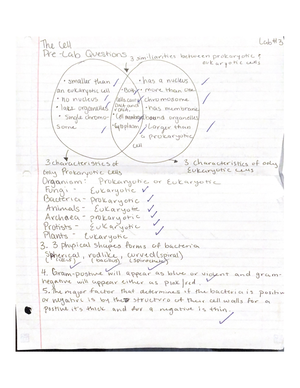 The Cell
Lab #3
Pre-Lab Questions
3 similarities between prokaryotic &
eukaryotic cells
• smaller than
an eukaryotic cell
• no nucleus
• lack organelles
• single chromo-
some
• has a nucleus
• more than one
chromosome
• has membrane
bound organelles
• Larger than
a prokaryotic
cell
3 characteristics of
only Prokaryotic Cells
3 characteristics of only
Eukaryotic Cells
Organism: Prokaryotic or Eukaryotic
Fungi - Eukaryotic
Bacteria - Prokaryotic
Animals - Eukaryote
Archaea - prokaryotic
Protists - Eukaryotic
Plants - Eukaryotic
3. 3 physical shapes forms of bacteria
Spherical, rodlike, curved (spiral)
4. Gram-positive will appear as blue or violent and gram-
negative will appear either as pink/red.
5. The major factor that determines if the bacteria is positive
or negative is by the structure of their cell walls for a
positive it's thick and for a negative is thin.